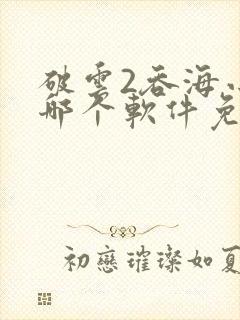 破雲2吞海
哪个軟件免
初戀璀璨如夏